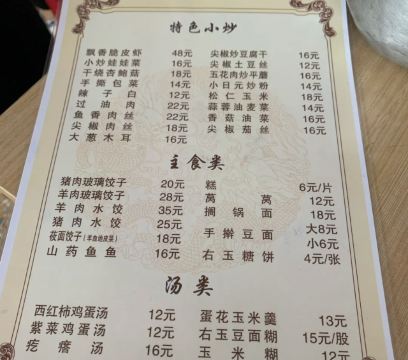 特色小炒
飘香脆皮虾 48元
小炒娃娃菜 16元
干烧杏鲍菇 18元
手撕包菜 14元
辣子白 12元
过油肉 22元
鱼香肉丝 22元
尖椒肉丝 18元
大葱木耳 16元
尖椒炒豆腐干 16元
尖椒土豆丝 12元
五花肉炒平蘑 16元
小日元炒粉 14元
松仁玉米 18元
蒜蓉油麦菜 14元
香菇油菜 16元
尖椒茄丝 16元
主食类
猪肉玻璃饺子 20元
羊肉玻璃饺子 28元
羊肉水饺 35元
猪肉水饺 25元
莜面饺子(羊鱼地皮菜) 18元
山药鱼鱼 16元
糕 6元/片
莴莴 12元
搁锅面 18元
手擀豆面 大8元
小6元
右玉糖饼 4元/张
汤类
西红柿鸡蛋汤 12元
紫菜鸡蛋汤 12元
疙瘩汤 16元
蛋花玉米羹 13元
右玉豆面糊 15元/股
玉米糊 12元